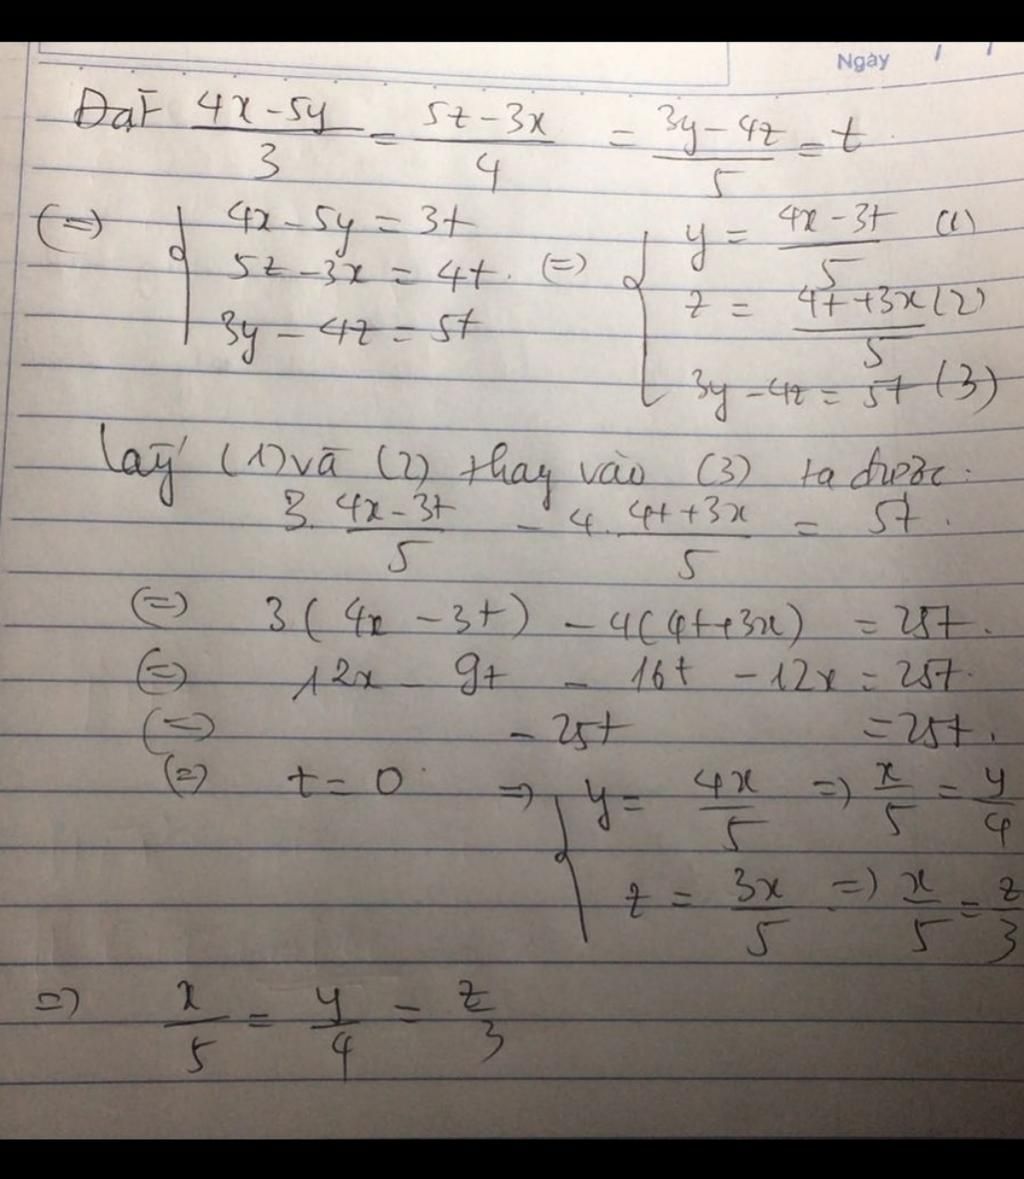 Ngày
Đặt (4x-5y)/3 = (5z-3x)/4 = (3y-4z)/5 = t.
(=) { 4x-5y = 3t (=) { y = (4x-3t)/5 (1)
5z-3x = 4t. z = (4t+3x)/5 (2)
3y-4z = 5t 3y-4z = 5t (3)
lấy (1) và (2) thay vào (3) ta được:
3. (4x-3t)/5 - 4. (4t+3x)/5 = 5t.
(=) 3(4x-3t) - 4(4t+3x) = 25t.
(=) 12x - 9t - 16t - 12x = 25t.
(=) - 25t = 25t.
(=) t = 0. => { y = 4x/5 => x/5 = y/4
z = 3x/5 => x/5 = z/3
=> x/5 = y/4 = z/3